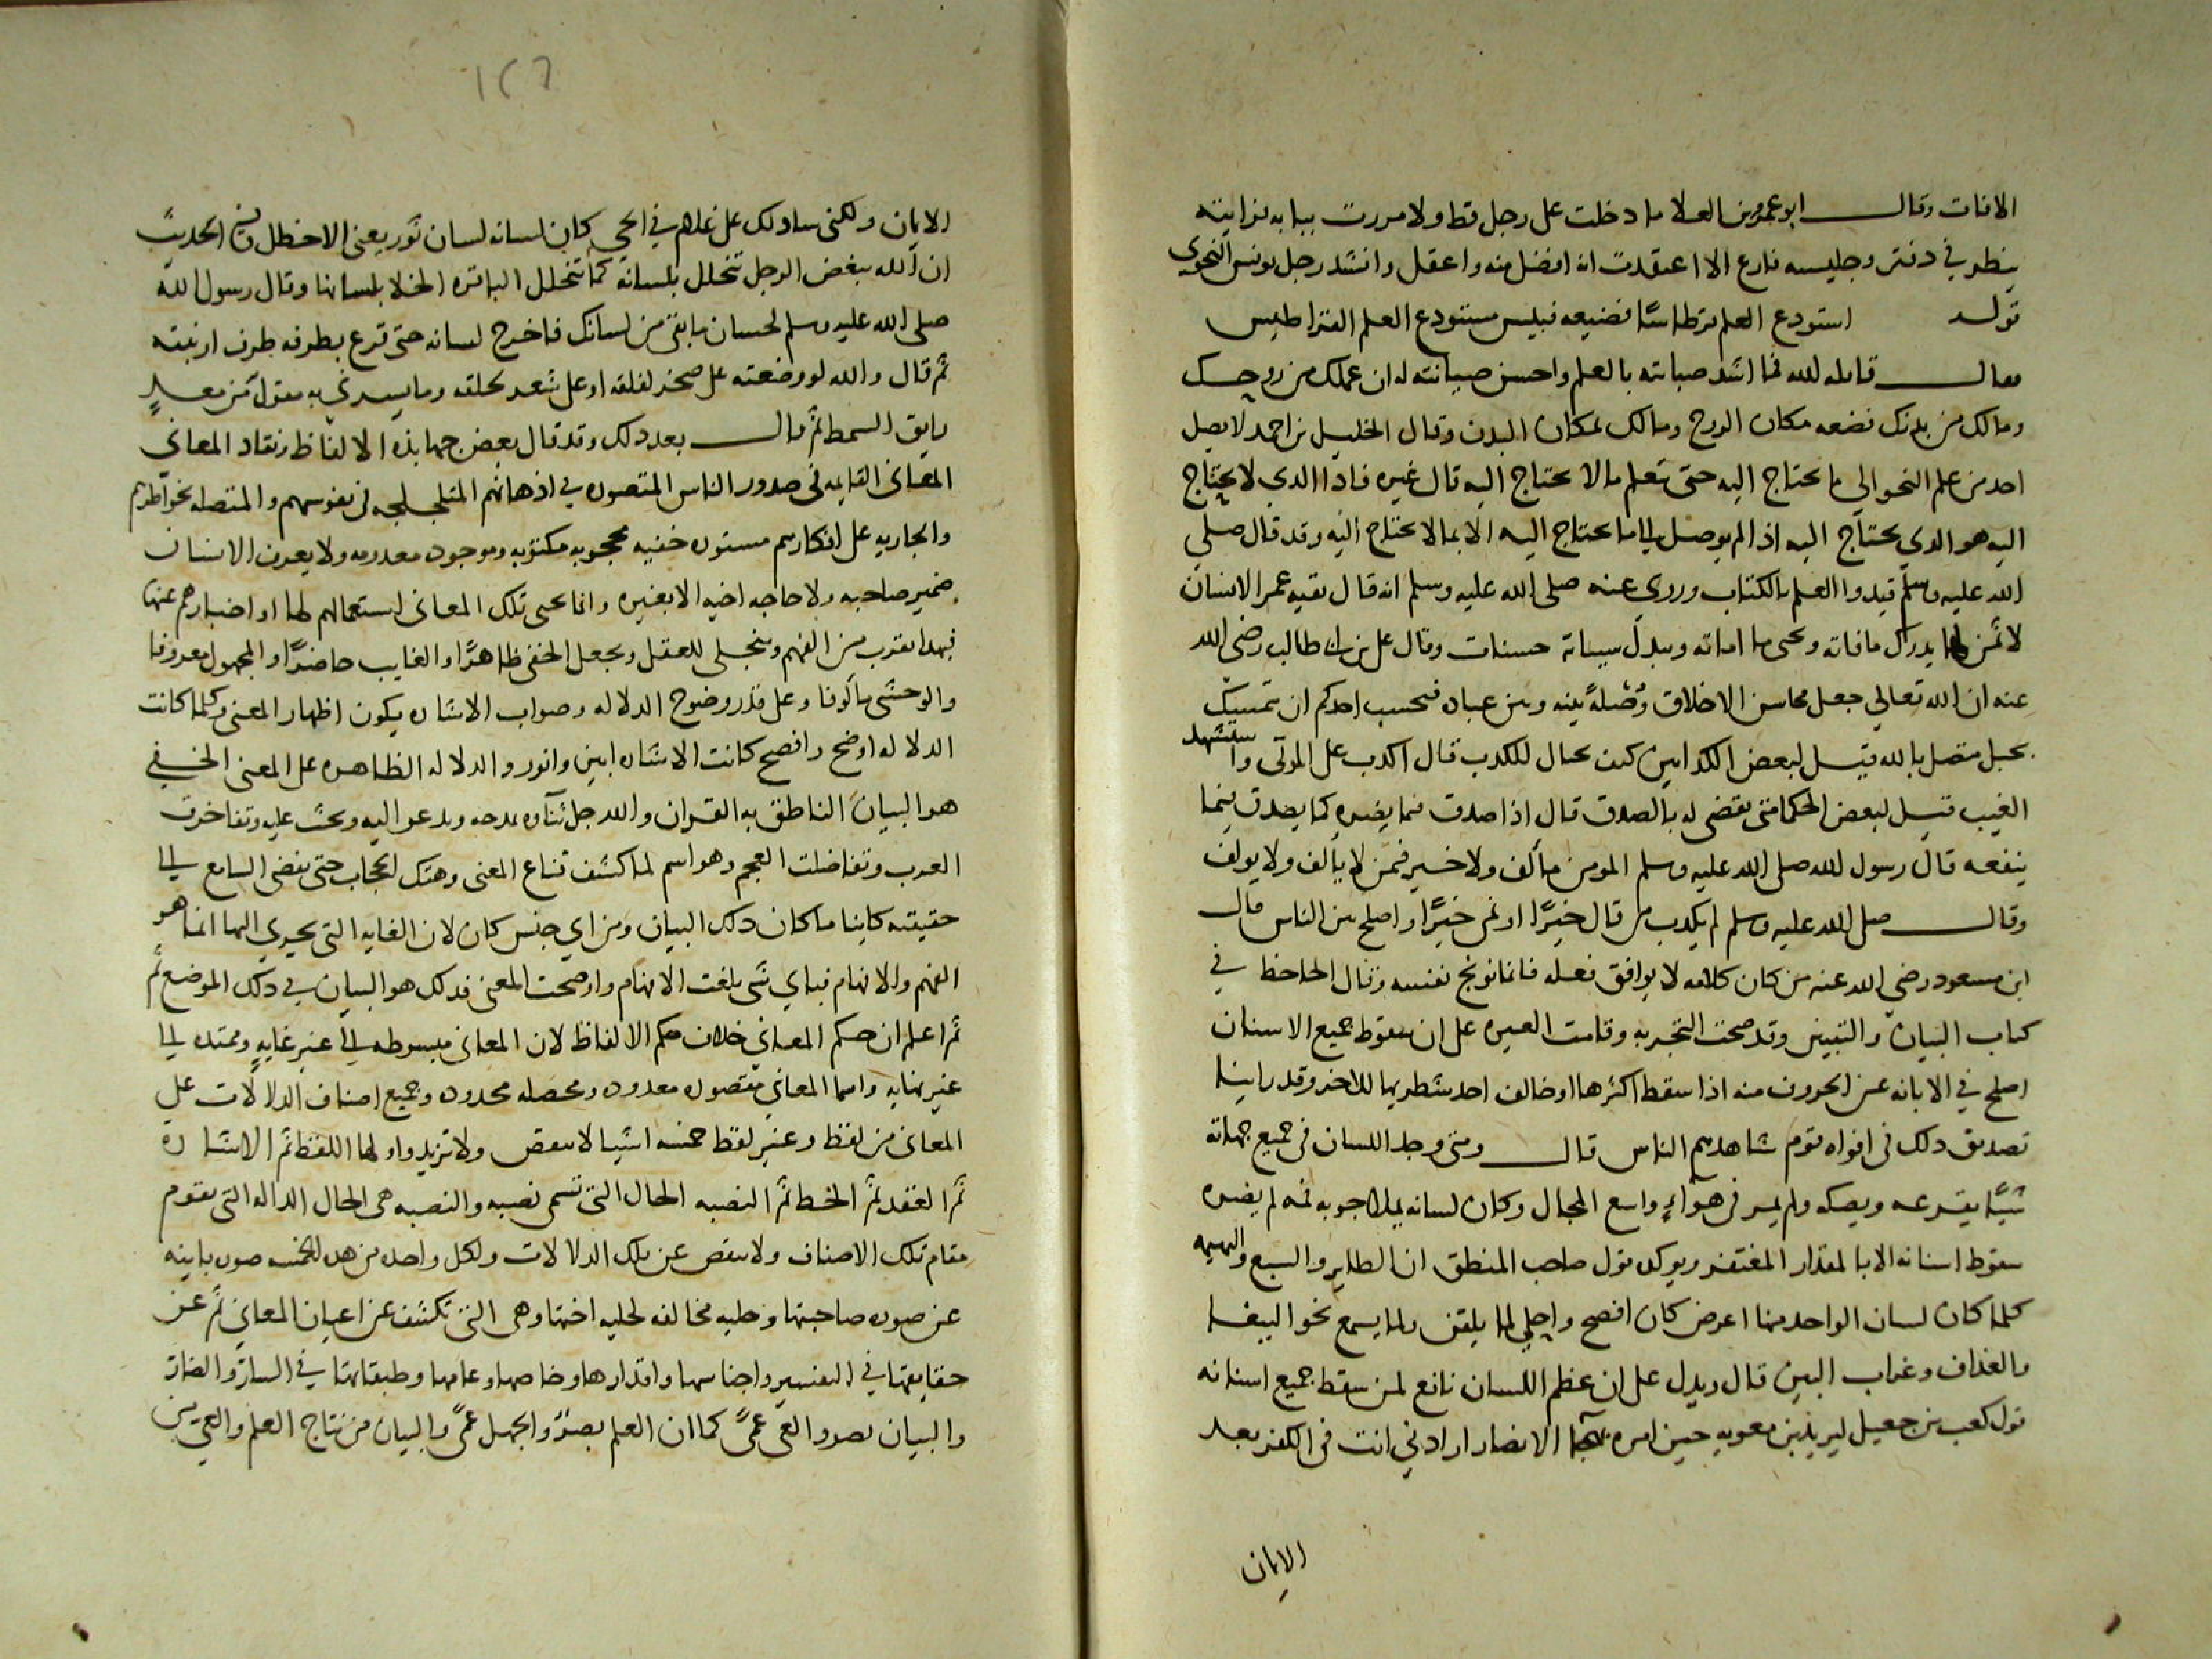 الافات وقال ابو عمرو بن العلا ما دخلت على رجل قط ولا مررت ببابه فرايته
ينظر في دفتر وجليسه فارغ الا اعتقدت انه افضل منه واعقل وانشد رجل يونس النحوي
قوله استودع العلم قرطاسا فضيعه فبيس مستودع العلم القراطيس
فقال قاتله الله فما اشد صبابته بالعلم واحسن صيانته له ان علمك من روحك
ومالك من بدنك فضعه مكان الروح ومالك بمكان البدن وقال الخليل بن احمد لا يصل
احد من علم النحو الى ما يحتاج اليه حتى يتعلم ما لا يحتاج اليه قال غيره فاذا الدي لا يحتاج
اليه هو الدي يحتاج اليه اذ الم يوصل الى ما يحتاج اليه الا بما لا يحتاج اليه وقد قال صلى
الله عليه وسلم قيدوا العلم بالكتاب وروى عنه صلى الله عليه وسلم انه قال بقيه عمر الانسان
لا ثمن لها يدرك ما فاته ويحيى ما اماته ويبدل سيياته حسنات وقال على بن ابى طالب رضى الله
عنه ان الله تعالى جعل محاسن الاخلاق وُصْلَةً بينه وبين عباده فبحسب احدكم ان يتمسك
بحبل متصل بالله قيل لبعض الكدابين كيف يحال للكدب قال اكدب على الموتى واستشهد
الغيب قيل لبعض الحكما متى يقضى له بالصدق قال اذا صدق فيما يضره كما يصدق فيما
ينفعه قال رسول الله صلى الله عليه وسلم المومن مألف ولا خير فيمن لا يألف ولا يولف
وقال صلى الله عليه وسلم لم يكدب من قال خيرًا او نمى خيرًا واصلح بين الناس قال
ابن مسعود رضي الله عنه من كان كلامه لا يوافق فعله فانما يوبخ نفسه وقال الجاحظ في
كتاب البيان والتبيين وقد صحت التجربه وقامت العبره على ان سقوط جميع الاسنان
اصلح في الابانه عن الحروف منه اذا سقط اكثرها او خالف احد شطريها للاخر وقد راينا
تصديق دلك فى افواه قوم شاهدهم الناس قال ومتى وجد اللسان فى جميع جهاته
شيًا يقرعه ويصكه ولم يمر فى هواءٍ واسع المجال وكان لسانه يملا جوبه فمه لم يضره
سقوط اسنانه الا بالمقدار المغتفر ويوكد قول صاحب المنطق ان الطاير والسبع والبهيمه
كلما كان لسان الواحد منها اعرض كان افصح واحكى لما يلقن ولما يسمع نحو الببغا
والغداف وغراب البين قال ويدل على ان عظم اللسان نافع لمن سقط جميع اسنانه
قول كعب بن جعيل ليزيد بن معويه حين امره بهجا الانصار ارادني انت فى الكفر بعد
الايمان
١٢٦
الايمان ولكنى سادلك على غلام في الحي كان لسانه لسان ثور يعنى الاخطل وفي الحديث
ان الله يبغض الرجل تتخلل بلسانه كما تتخلل الباقره الخلا بلسانها وقال رسول الله
صلى الله عليه وسلم لحسان ما بقى من لسانك فاخرج لسانه حتى قرع بطرفه طرف ارنبته
ثم قال والله لو وضعته على صخر لفلقه او على شعر لحلقه وما يسرني به مقول من معدٍ
رايق السمط ثم قال بعد دلك وقد قال بعض جهابذه الالفاظ ونقاد المعانى
المعانى القايمه فى صدور الناس المتصوره في اذهانهم المتلجلجه فى نفوسهم والمتصله بخواطرهم
والجاريه على افكارهم مستوره خفيه محجوبه مكنونه وموجوده معدومه ولا يعرف الانسان
ضمير صاحبه ولا حاجه اخيه الا بغيره وانما يحيى تلك المعانى استعمالهم لها او اخبارهم عنها
فبهدا تقرب من الفهم وينجلى للعقل ويجعل الخفى ظاهرًا والغايب حاضرًا والمجهول معروفا
والوحشى مألوفا وعلى قدر وضوح الدلاله وصواب الاشاره يكون اظهار المعنى وكلما كانت
الدلاله اوضح وافصح كانت الاشاره ابين وانور والدلاله الظاهره على المعنى الخفي
هو البيان الناطق به القران والله جل ثناوه يمدحه ويدعو اليه ويحث عليه وتفاخرت
العرب وتفاضلت العجم وهو اسم لما كشف قناع المعنى وهتك الحجاب حتى يفضى السامع الى
حقيقته كاينا ما كان دلك البيان ومن اي جنس كان لان الغايه التى يجري اليها انما هو
الفهم والافهام فباي شى بلغت الافهام واوضحت المعنى فدلك هو البيان في دلك الموضع ثم
ثم اعلم ان حكم المعاني خلاف حكم الالفاظ لان المعانى مبسوطه الى غير غايه وممتده الى
غير نهايه واسما المعاني مقصوره معدوده ومحصله محدوده وجميع اصناف الدلالات على
المعانى من لفظ وغير لفظ خمسه اشيا لا تنقص ولا تزيد واولها اللفظ ثم الاشاره
ثم العقد ثم الخط ثم النصبه الحال التى تسمى نصبه والنصبه هى الحال الداله التى تقوم
مقام تلك الاصناف ولا تنقص عن تلك الدلالات ولكل واحده من هده الخمسه صوره باينه
عن صوره صاحبتها وحليه مخالفه لحليه اختها وهى التى تكشف عن اعيان المعاني ثم عن
حقايقها في التفسير واجناسها واقدارها وخاصها وعامها وطبقاتها في السار والضار
والبيان بصر والعى عمىً كما ان العلم بصرٌ والجهل عمًى والبيان من نتاج العلم والعي من